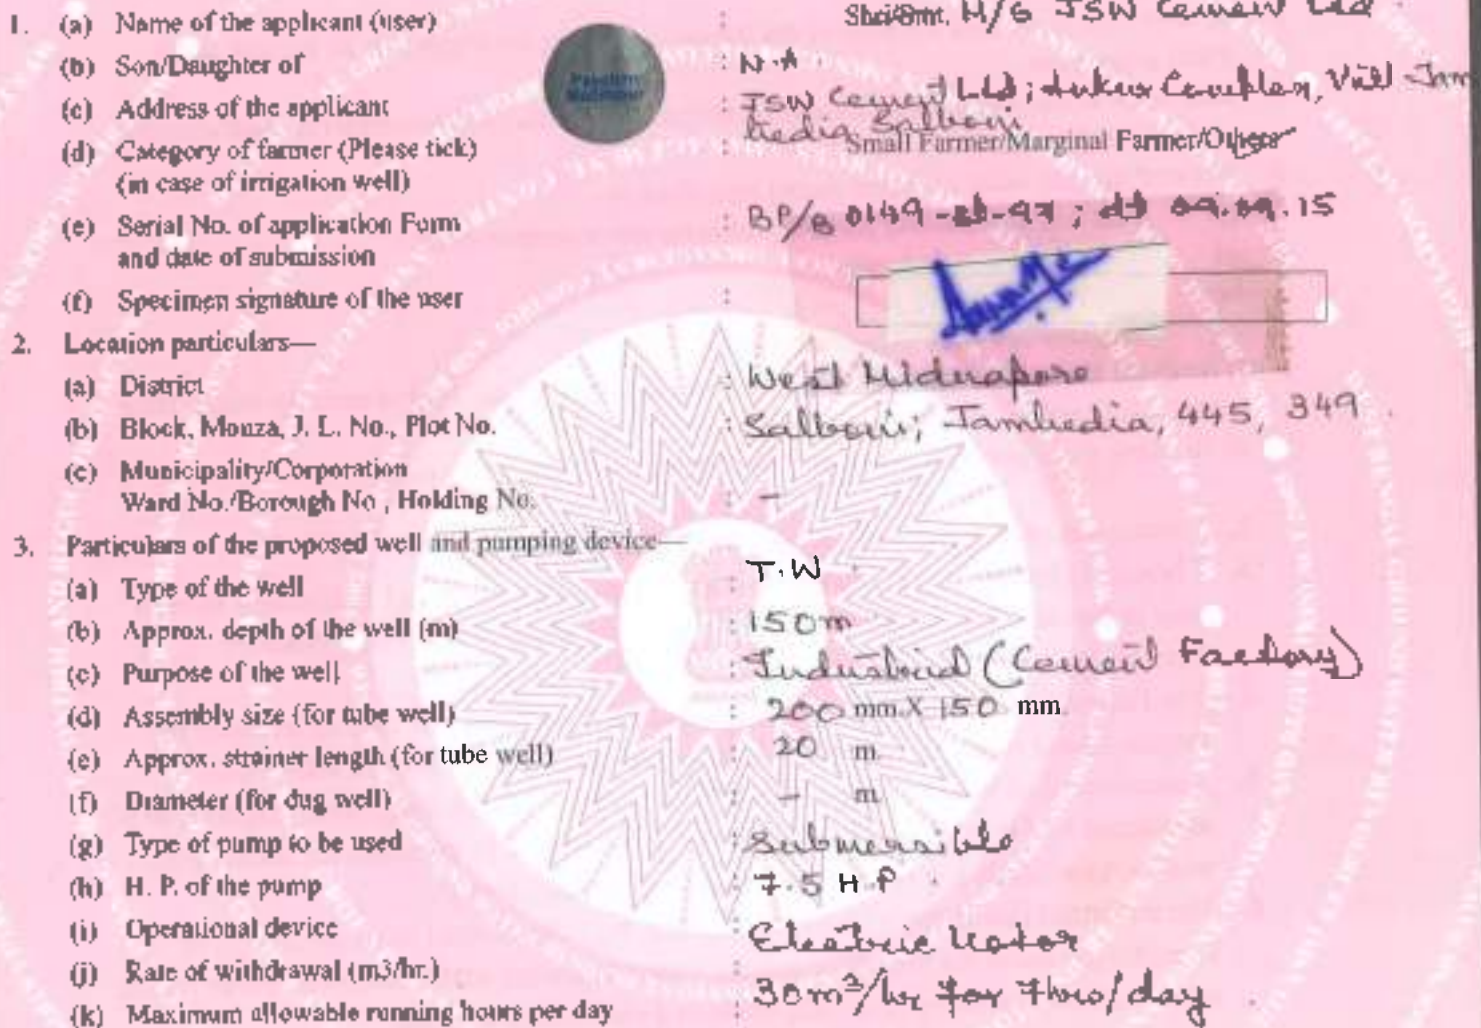 1. (a) Name of the applicant (user) : Shri/Smt. M/S JSW Cement Ltd.
(b) Son/Daughter of : N.A
(c) Address of the applicant : JSW Cement Ltd; Ankur Complex, Vill - Jam
bedia Salboni
(d) Category of farmer (Please tick) : Small Farmer/Marginal Farmer/Others
(in case of irrigation well)
(e) Serial No. of application Form : BP/B 0149 -97; dt 09.09.15
and date of submission
(f) Specimen signature of the user :
2. Location particulars—
(a) District : West Midnapore
(b) Block, Mouza, J. L. No., Plot No. : Salboni; Jambedia, 445, 349.
(c) Municipality/Corporation
Ward No./Borough No , Holding No. : –
3. Particulars of the proposed well and pumping device—
(a) Type of the well T.W
(b) Approx. depth of the well (m) : 150m
(c) Purpose of the well : Industrial (Cement Factory)
(d) Assembly size (for tube well) : 200 mm. X 150 mm
(e) Approx. strainer length (for tube well) : 20 m.
(f) Diameter (for dug well) : – m.
(g) Type of pump to be used : Submersible
(h) H. P. of the pump : 7.5 H.P.
(i) Operational device : Electric Motor
(j) Rate of withdrawal (m3/hr.) : 30m³/hr for 7hrs/day.
(k) Maximum allowable running hours per day :